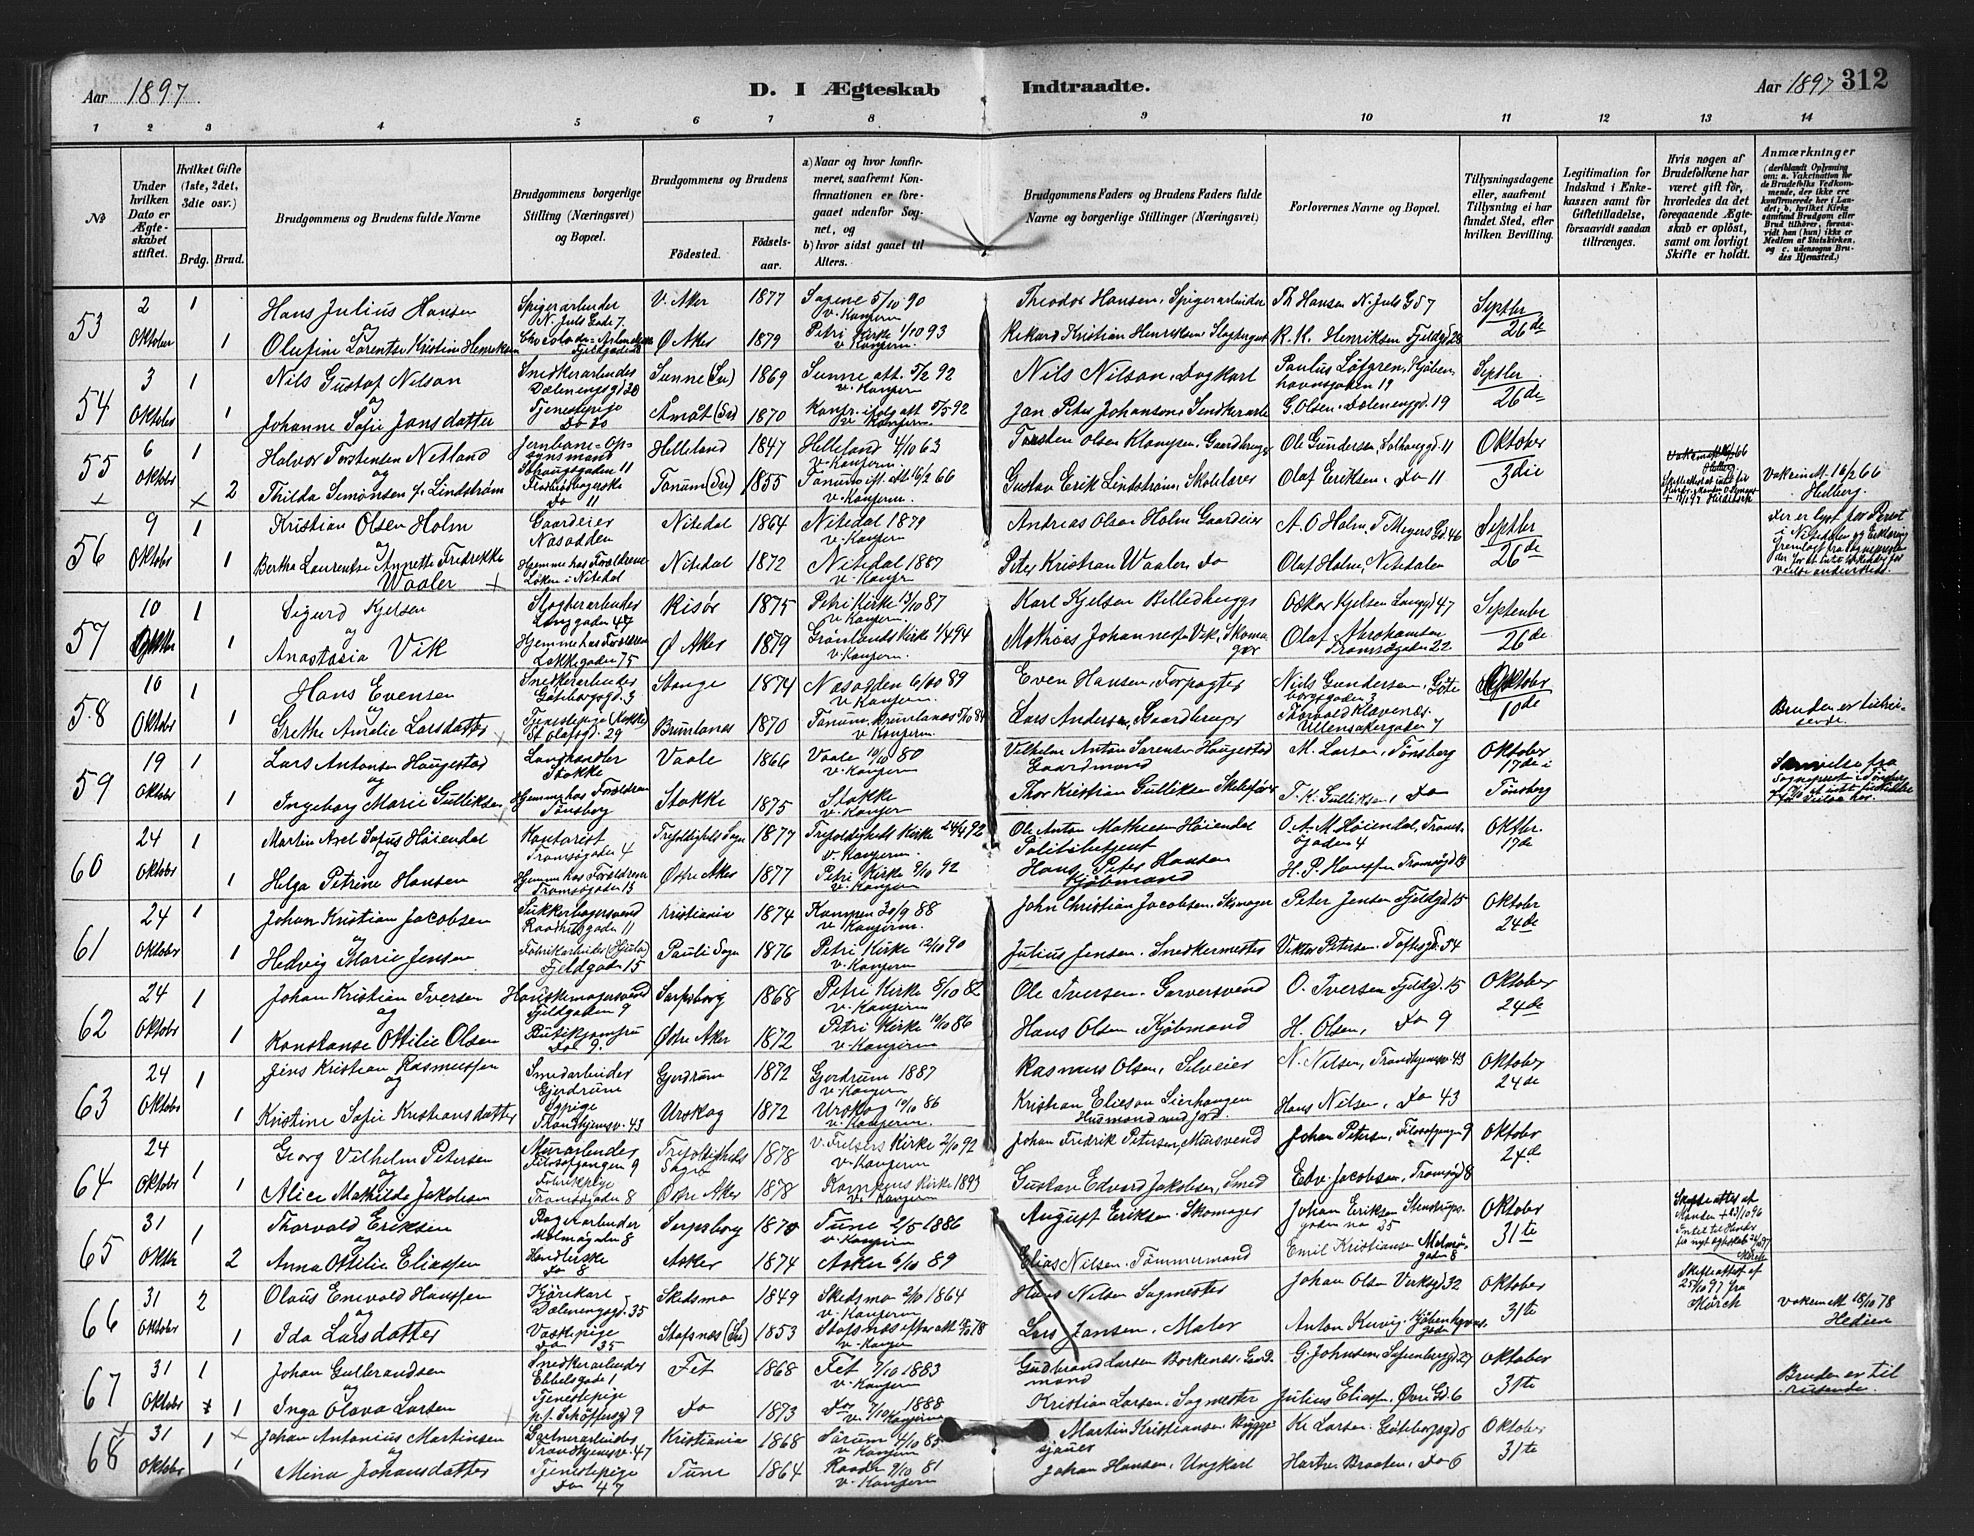 Aar 1897. D. I Ægteskab Indtraadte. Aar 1897 312
1 2 3 4 5 6 7 8 9 10 11 12 13 14
№
Under hvilken Dato er Ægteskabet stiftet.
Hvilket Gifte (1ste, 2det, 3die osv.)
Brdg. Brud.
Brudgommens og Brudens fulde Navne
Brudgommens borgerlige Stilling (Næringsvei) og Bopæl.
Brudgommens og Brudens
Fødested. Fødsels-aar.
a) Naar og hvor konfirmeret, saafremt Konfirmationen er foregaaet udenfor Sognet, og
b) hvor sidst gaaet til Alters.
Brudgommens Faders og Brudens Faders fulde Navne og borgerlige Stillinger (Næringsvei)
Forlovernes Navne og Bopæl.
Tillysningsdagene eller, saafremt Tillysning ei har fundet Sted, efter hvilken Bevilling.
Legitimation for Indskud i Enkekassen samt for Giftetilladelse, forsaavidt saadan tiltrænges.
Hvis nogen af Brudefolkene har været gift før, hvorledes da det foregaaende Ægteskab er opløst, samt om lovligt Skifte er holdt.
Anmærkninger (deriblandt Oplysning om: a. Vaccination for de Brudefolks Vedkommende, der ikke ere konfirmerede her i Landet; b. hvilket Kirkesamfund Brudgom eller Brud tilhører, forsaavidt han (hun) ikke er Medlem af Statskirken, og c. udensogns Brudes Hjemsted.)
53 2 Oktober 1 Hans Julius Hansen Spigerarbeider N. Juls Gade 7 V. Aker 1877 Sagene 5/10 90 v. Konfirm Theodor Hansen, Spigerarbeider Th Hansen N. Juls Gd 7 Septbr 26de
og 1 Olufine Lorentse Kristine Henriksen Ø Aker 1879 Petri Kirke 1/10 93 v. Konfirm. Rikard Kristian Henriksen R. K. Henriksen Fjeldgd 28
54 3 Oktober 1 Nils Gustaf Nilson Snedkerarbeider Dælenengd 20 Sunne (Sv) 1869 Sunne att. 5/2 92 v. Konfirm Nils Nilson, Dagkarl Paulus Löfgren, Kjøbenhavnsgaden 19 Septbr 26de
og 1 Johanne Sofie Jansdatter Tjenestepige Do 20 Åmåt (Sv) 1870 v. Konfirm. Jan Peter Johanson, Snedkerarbe G. Olsen, Dælenenggd. 19
55 6 Oktober 1 Halvor Torstensen Netland Jernbane-Opsynsmand 11 Helleland 1847 Helleland 4/10 63 v. Konfirm Torsten Olsen Ole Gundersen, 11 Oktober 3die
og 2 Thilda Simonsen f. Lindstrøm Do 11 Tanum (Sv) 1855 v. Konfirm. Gustav Erik Lindstrøm, Skolelærer Olaf Eriksen, Do 11 Vakcin att. 16/2 66 Helberg.
56 9 Oktober 1 Kristian Olsen Holm Gaardeier Næsodden Nitedal 1864 Nitedal 1879 v. Konfirm Andreas Olsen Holm Gaardeier A. O Holm, T. Meyers Gd 46 Septbr 26de
og 1 Bertha Laurentse Annette Fredrikke Waaler Hjemme hos Forældrene Løken i Nitedal Nitedal 1872 Nitedal 1887 v. Konfr Peter Kristian Waaler, Do Olaf Holm, Nitedalen
57 10 1 Sigurd Kjelsen Slagterarbeider Langgaden 47 Risør 1875 Petri Kirke 13/10 87 v. Konfirm. Karl Kjelsen Oskar Kjelsen Langgd 47 September 26de
og 1 Anastasia Vik Hjemme hos Forældrene Lakkegaden 75 Ø Aker 1879 Grønlands Kirke 1/4 94 v. Konfirm. Mathias Johannesen Vik, Skomager Olaf Abrahamsen Tromsøgaden 22
58 10 Oktober 1 Hans Evensen Snedkerarbeider Gøteborggd. 3 Stange 1874 Næsodden 6/10 89 v. Konfirm. Even Hansen, Forpagter Niels Gundersen, Gøteborgsgaden 3 Oktober 10de
og 1 Grethe Amalie Larsdatter Tjenestepige St. Olafsgd. 29 1870 v. Konfirm. Lars Andersen, Gaardbruger Thorvald Klavenes Ullensakergaden 7 Bruden er tilreisende.
59 19 Oktober 1 Lars Antonsen Haugestad Landhandler Stokke Vaale 1866 Vaale 10/10 80 v. Konfirm Vilhelm Anton Sørensen Haugestad Gaardmand M. Larsen, Tønsberg Oktober 17de i Tønsberg
og 1 Ingeborg Marie Gulliksen Hjemme hos Forældrene Tønsberg Stokke 1875 Stokke v. Konfirm Thor Kristian Gulliksen T. K. Gulliksen, Do
60 24 Oktober 1 Martin Axel Sofus Høiendal Kontorist Tromsøgaden 4 Trefoldigheds Sogn 1877 Trefoldigheds Kirke 24/4 92 v. Konfirm Ole Anton Mathiesen Høiendal Politibetjent O. A. M. Høiendal, Tromsøgaden 4 Oktbr. 17de
og 1 Helga Petrine Hansen Hjemme hos Forældrene Tromsøgaden 13 Østre Aker 1877 Petri Kirke 9/10 92 v. Konfirm Hans Peter Hansen Kjøbmand H. P. Hansen Tromsøgd 13
61 24 Oktober 1 Johan Kristian Jacobsen Sukkerbagersvend Raadhusgaden 11 Kristiania 1874 Kampen 30/9 88 v. Konfirm. John Christian Jacobsen, Skomager Peter Jensen Fjeldgd 15 Oktober 24de
og 1 Hedvig Marie Jensen Fabrikarbeider Fjeldgaden 15 Pauli Sogn 1876 Petri Kirke 12/10 90 v. Konfirm Julius Jensen, Snedkermester Viktor Petersen, Toftesgd. 54
62 24 Oktober 1 Johan Kristian Iversen Hanskemagersvend Fjeldgaden 9 Sarpsborg 1868 Petri Kirke 8/10 82 v. Konfirm Ole Iversen, Garversvend O. Iversen Fjeldgd. 15 Oktober 24de
og 1 Konstanse Ottilie Olsen Butikjomfru Do 9. Østre Aker 1872 Petri Kirke 10/10 86 v. Konfirm Hans Olsen, Kjøbmand H. Olsen, Do 9
63 24 Oktober 1 Jens Kristian Rasmussen Smedarbeider Gjerdrum Gjerdrum 1872 Gjerdrum 1887 v. Konfirm Rasmus Olsen, N. Nilsen, Trondhjemsv. 43 Oktober 24de
og 1 Kristine Sofie Kristiansdatter Trondhjemsv. 43 Urskog 1872 Urskog 10/10 86 v. Konfirm. Kristian Eliesen Lierhaugen Husmand med Jord. Hans Nilsen, Do 43
64 24 Oktober 1 Georg Vilhelm Petersen Murarbeider Filosofgangen 9 Trefoldigheds Sogn 1878 v. Frelsers Kirke 2/10 92 v. Konfirm Johan Fredrik Petersen, Mursvend Johan Petersen, Filosofgangen 9 Oktober 24de
og 1 Alice Mathilde Jakobsen Fabrikpige Tromsøgaden 8 Østre Aker 1878 Kampens Kirke 1893 v. Konfirm Gustav Edvard Jakobsen, Smed Edv. Jacobsen, Tromsøgd 8
65 31 Oktbr 1 Thorvald Eriksen Bagerarbeider Malmøgaden 8 Sarpsborg 1870 Tune 2/5 1886 v. Konfirm August Eriksen, Skomager Johan Eriksen Stenstrupsgaden no 25 Oktober 31te
og 2 Anna Othilie Eliassen Do 8 Asker 1874 Asker 6/10 89 Elias Nilsen, Tømmermand Emil Kristiansen Malmøgaden 8
66 31 Oktober 2 Olaus Enevold Hanssen Kjørekarl Dælenenggd. 35 Skedsmo 1849 Skedsmo 2/10 1864 v. Konfirm Hans Nilsen Sagmester Johan Olsen Verksgd 32 Oktober 31te Skifteattest af 25/10 97 fra Mörch
og 1 Ida Larsdatter Vaskepige Do 35 Stafsnæs (Sv) 1853 v. Konfirm Lars Jansen, Maler Anton Vakcin att 18/10 78 Hedien
67 31 Oktober 1 Johan Gulbrandsen Snedkerarbeider Ebbelsgade 1 Fet 1868 Fet 7/10 1883 v. Konfirm Gudbrand Larsen Borkenes, Gaardmand G. Johnsen, Sofienberggd 27 Oktober 31te
og 1 Inga Olava Larsen Tjenestepige p.t. Schöffersgd 9 Do 1873 Do 7/10 1888 v. Konfirm Kristian Larsen, Sagmester Julius Eliassen, Øvre Gd. 6 Bruden er tilreisende.
68 31 Oktober 1 Johan Antonius Martinsen Gartnerarbeider Trondhjemsv. 47 Kristiania 1868 Sørum 4/10 85 v. Konfirm Martin Kristiansen Bryggesjauer Kr Larsen, Gøteborggd 6 Oktober 31te
og 1 Mina Johansdatter Tjenestepige Do 47 Tune 1864 Raade 9/10 81 v. Konfirm Johan Hansen, Ungkarl Braaten, Do 6